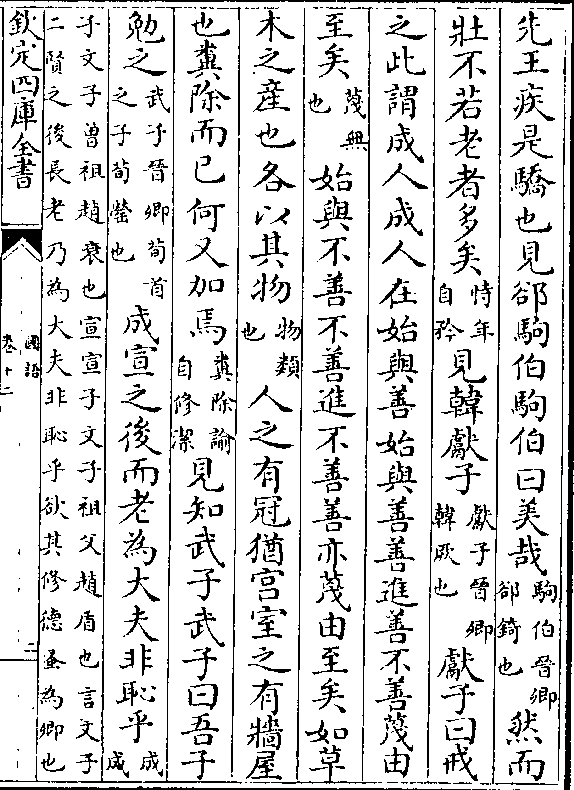 先王疾是驕也見郤駒伯駒伯曰美哉駒伯晉卿郤錡也然而
壯不若老者多矣恃年自矜見韓獻子獻子晉卿韓厥也獻子曰戒
之此謂成人成人在始與善始與善善進善不善蔑由
至矣蔑無也始與不善不善進不善善亦蔑由至矣如草
木之産也各以其物物類也人之有冠猶宫室之有牆屋
也糞除而已何又加焉糞除諭自修潔見知武子武子曰吾子
勉之武子晉卿荀首之子荀罃也成宣之後而老為大夫非恥乎成成
子文子曾祖趙衰也宣宣子文子祖父趙盾也言文子二賢之後長老乃為大夫非恥乎欲其修德蚤為卿也
欽定四庫全書
國語
卷十二